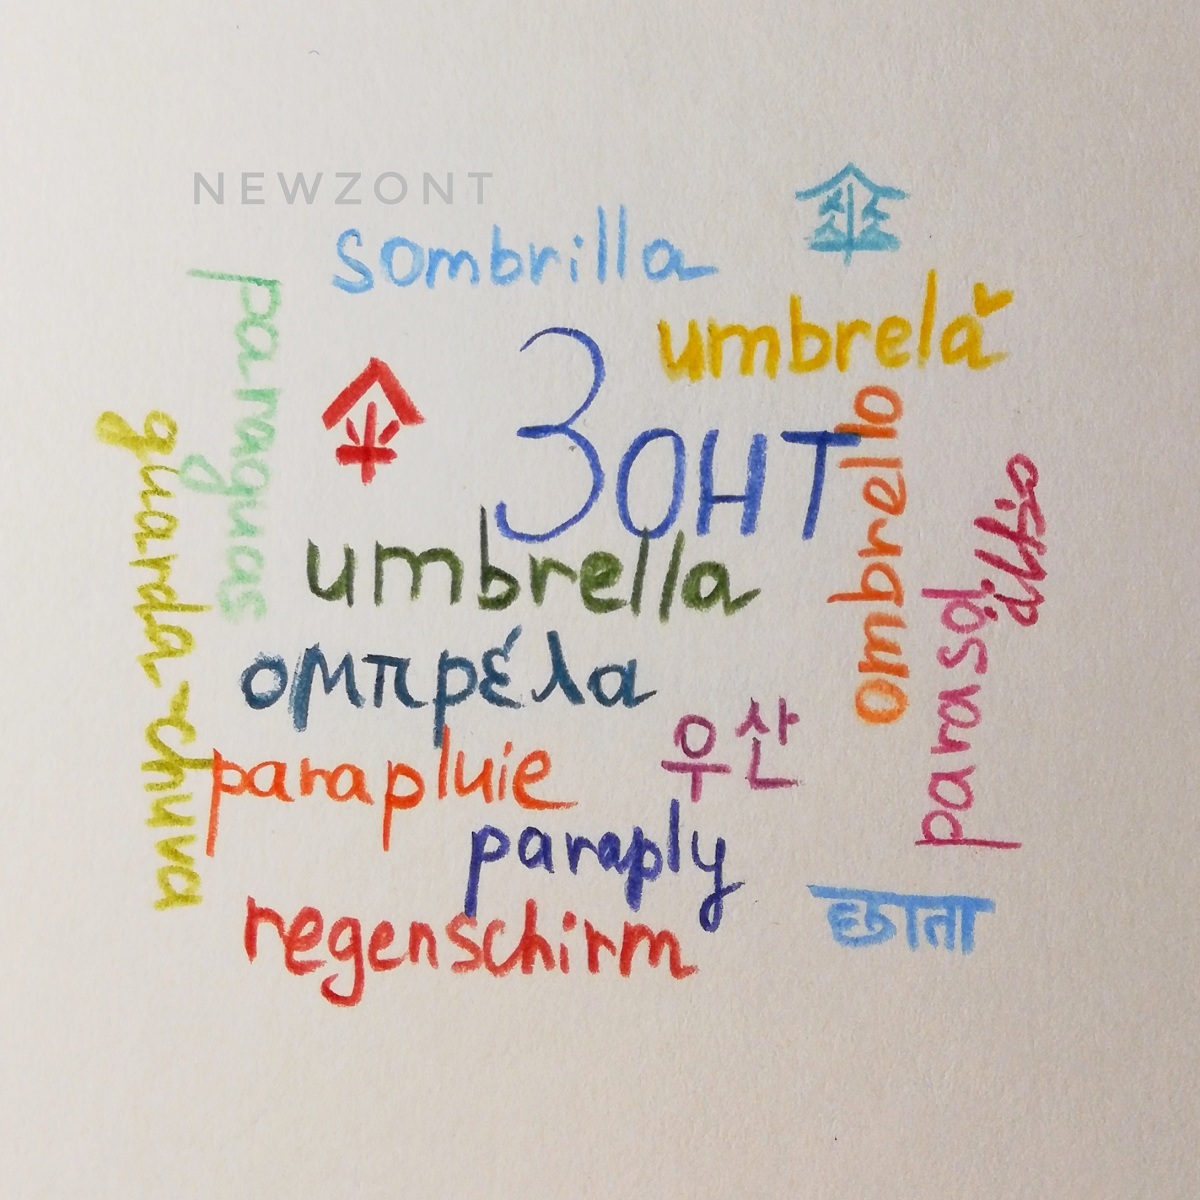 NEWZONT
傘
sombrilla
paraguas
umbrelă
伞
Зонт
ombrello
guarda-chuva
umbrella
parasol
ομπρέλα
우산
parapluie
paraply
छाता
regenschirm